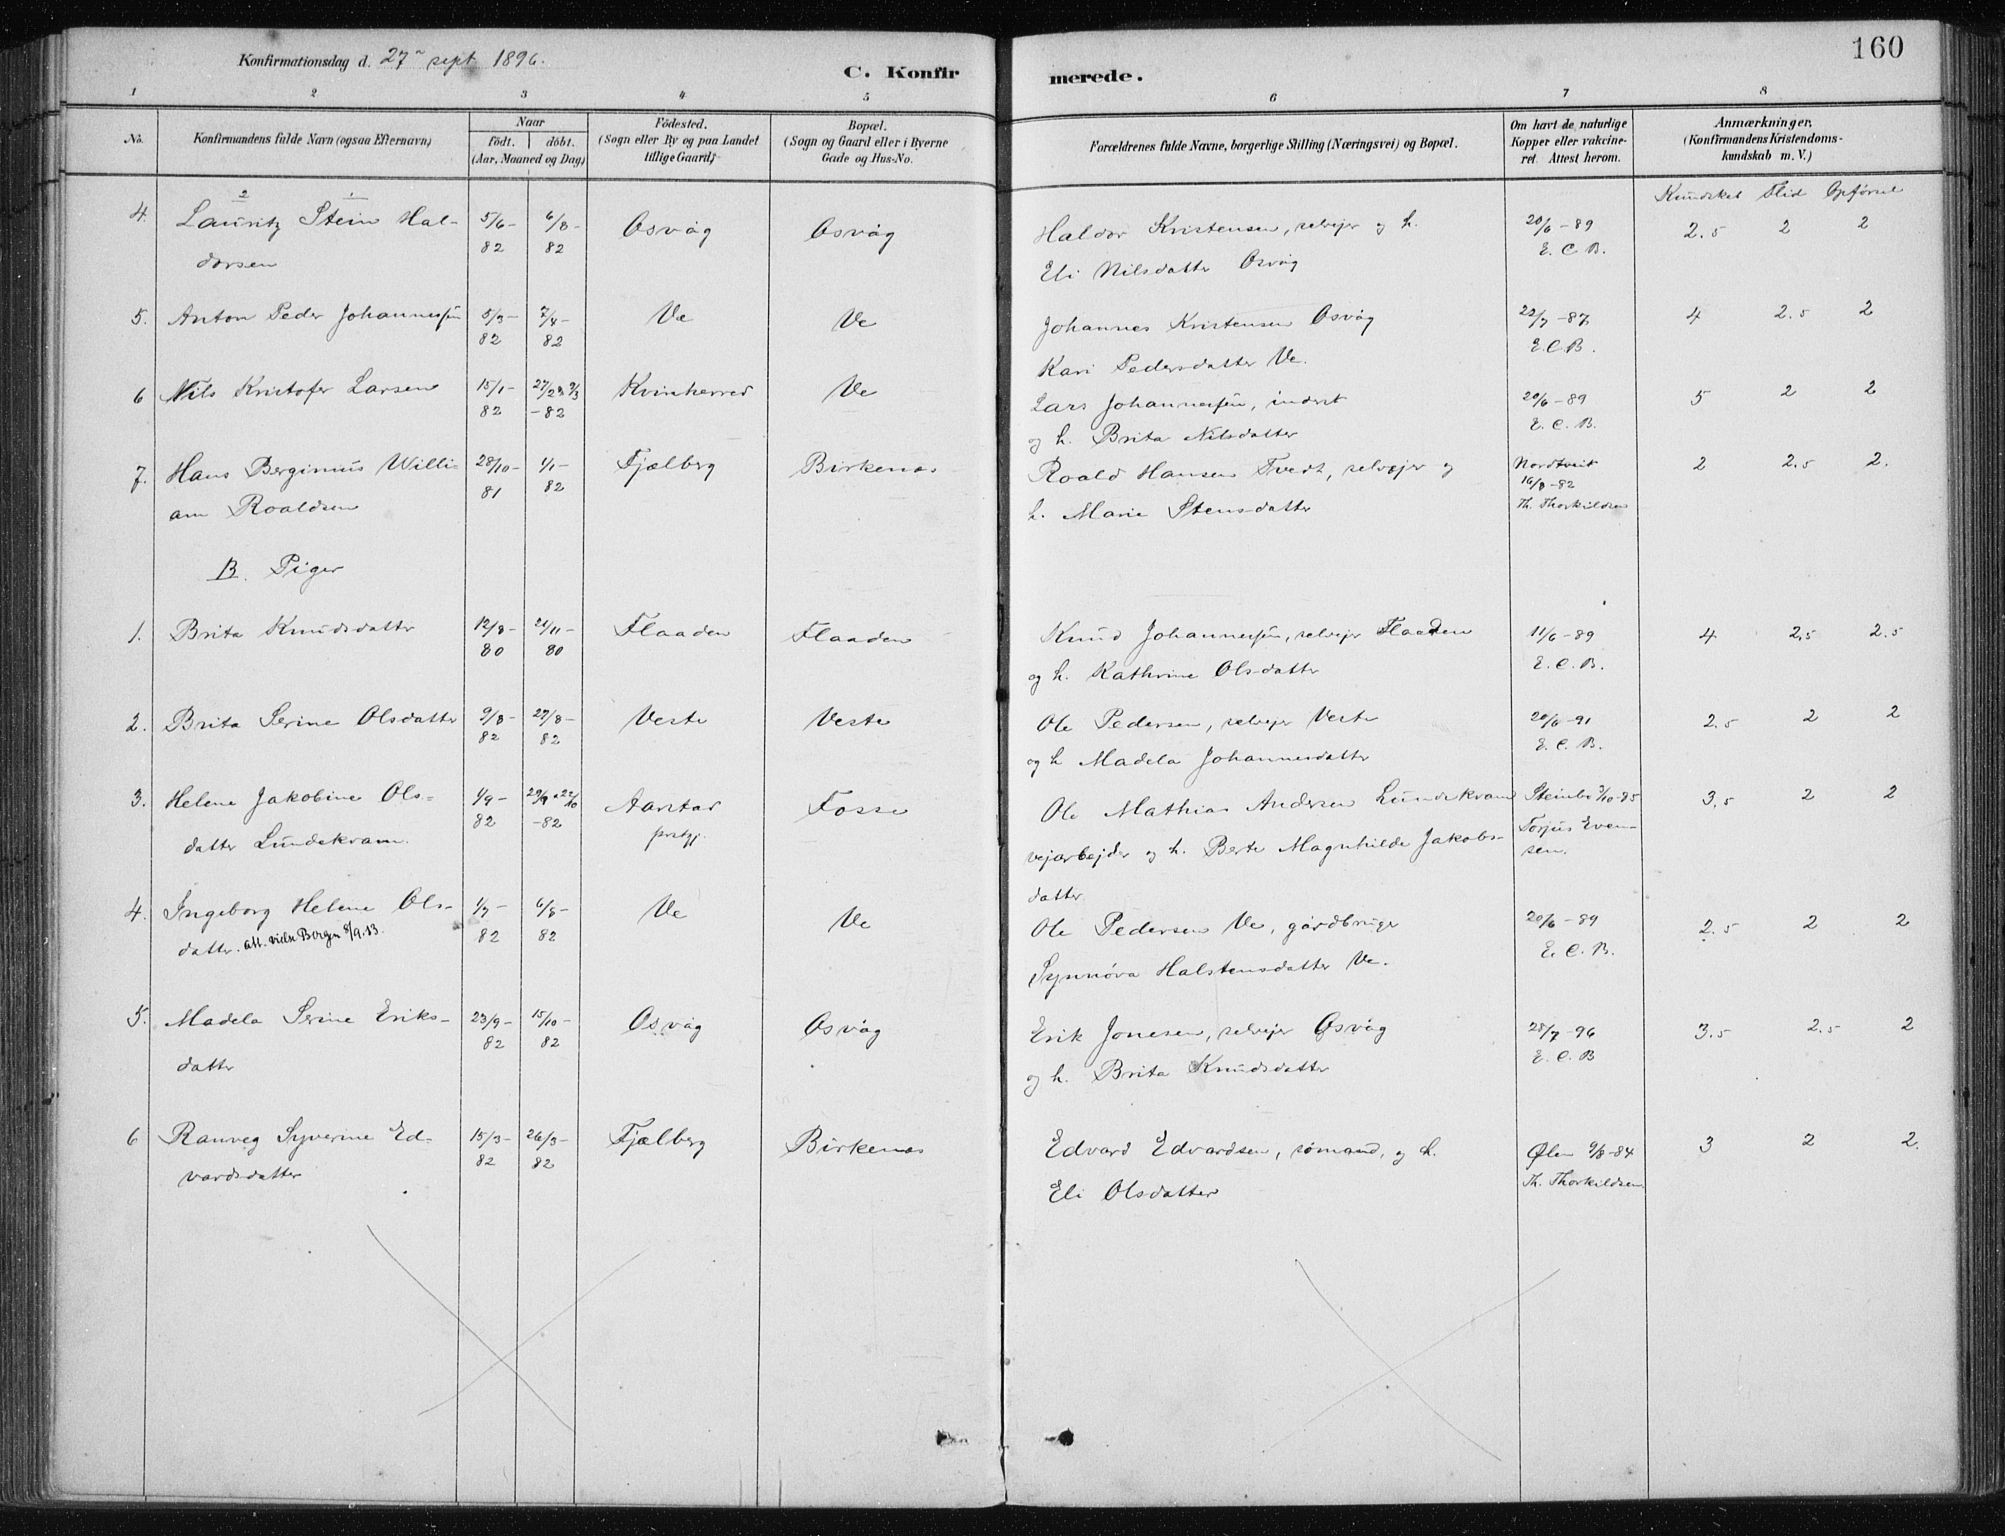 160
Konfirmationsdag d. 27de sept 1896.
C. Konfir merede.
1 2 3 4 5 6 7 8
No.
Konfirmandens fulde Navn (ogsaa Efternavn)
Naar
födt. döbt.
(Aar, Maaned og Dag)
Födested.
(Sogn eller By og paa Landet
tillige Gaard).
Bopæl.
(Sogn og Gaard eller i Byerne
Gade og Hus-No.
Forældrenes fulde Navne, borgerlige Stilling (Næringsvei) og Bopæl.
Om havt de naturlige
Kopper eller vakcine-
ret. Attest herom.
Anmærkninger.
(Konfirmandens Kristendoms-
kundskab m. V.)
Kundskab Flid Opførsel
2 1
4. Lauritz Stein Hal- 5/6- 6/8- Osvåg Osvåg Haldor Kristensen, selvejer og h. 20/6-89 2.5 2 2
dorsen 82 82 Eli Nilsdatter Osvåg E. C. B.
5. Anton Peder Johannessen 5/3- 7/4- Ve Ve Johannes Kristensen Osvåg 22/7-87 4 2.5 2
82 82 Kari Pedersdatter Ve. E. C. B.
6 Nils Kristofer Larsen 15/1- Kvinherred Ve Lars Johannessen, inderst 20/6-89 5 2 2
82 -82 og h. Brita Nilsdatter E. C. B.
7. Hans Bergimus Willi- 28/10- 1/1- Fjælberg Birkenæs Roald Hansen Tvedt, selvejer og Nordtveit 2 2.5 2.
am Roaldsen 81 82 h. Marie Stensdatter 16/8-82
Th. Thorkildsen
B. Piger
1. Brita Knudsdatter 12/8- 21/11- Flaaden Flaaden Knud Johannessen, selvejer Flaaden 11/6-89 4 2.5 2.5
80 80 og h. Kathrine Olsdatter E. C. B.
2. Brita Serine Olsdatter 9/8- 27/8- Veste Veste Ole Pedersen, selvejer Veste 20/6-91 2.5 2 2
82 82 og h Madela Johannesdatter E. C. B.
3. Helene Jakobine Ols- 1/9- Aarstad Fosse Ole Mathias Andersen Lundekvam Steinbø 3/10-85 3.5 2 2
datter Lundekvam. 82 -82 prstgj. vejarbejder og h. Berte Magnhilde Jakobs- Torjus Even-
datter sen.
4. Ingeborg Helene Ols- 1/7- 6/8- Ve Ve Ole Pedersen Ve, gårdbruger 20/6-89 2.5 2 2
datter. att. vielse Bergen 8/9.13. 82 82 Synnøva Halstensdatter Ve. E. C. B.
5. Madela Serine Eriks- 23/9- 15/10- Osvåg Osvåg Erik Jonesen, selvejer Osvåg 28/7-96 3.5 2.5 2
datter 82 82 og h. Brita Knudsdatter E. C. B
6 Ranveg Syverine Ed- 15/3- 26/3- Fjælberg Birkenæs Edvard Edvardsen, sømand, og h. Ølen 9/8-84 3 2 2.
vardsdatter 82 82 Eli Olsdatter Th. Thorkildsen